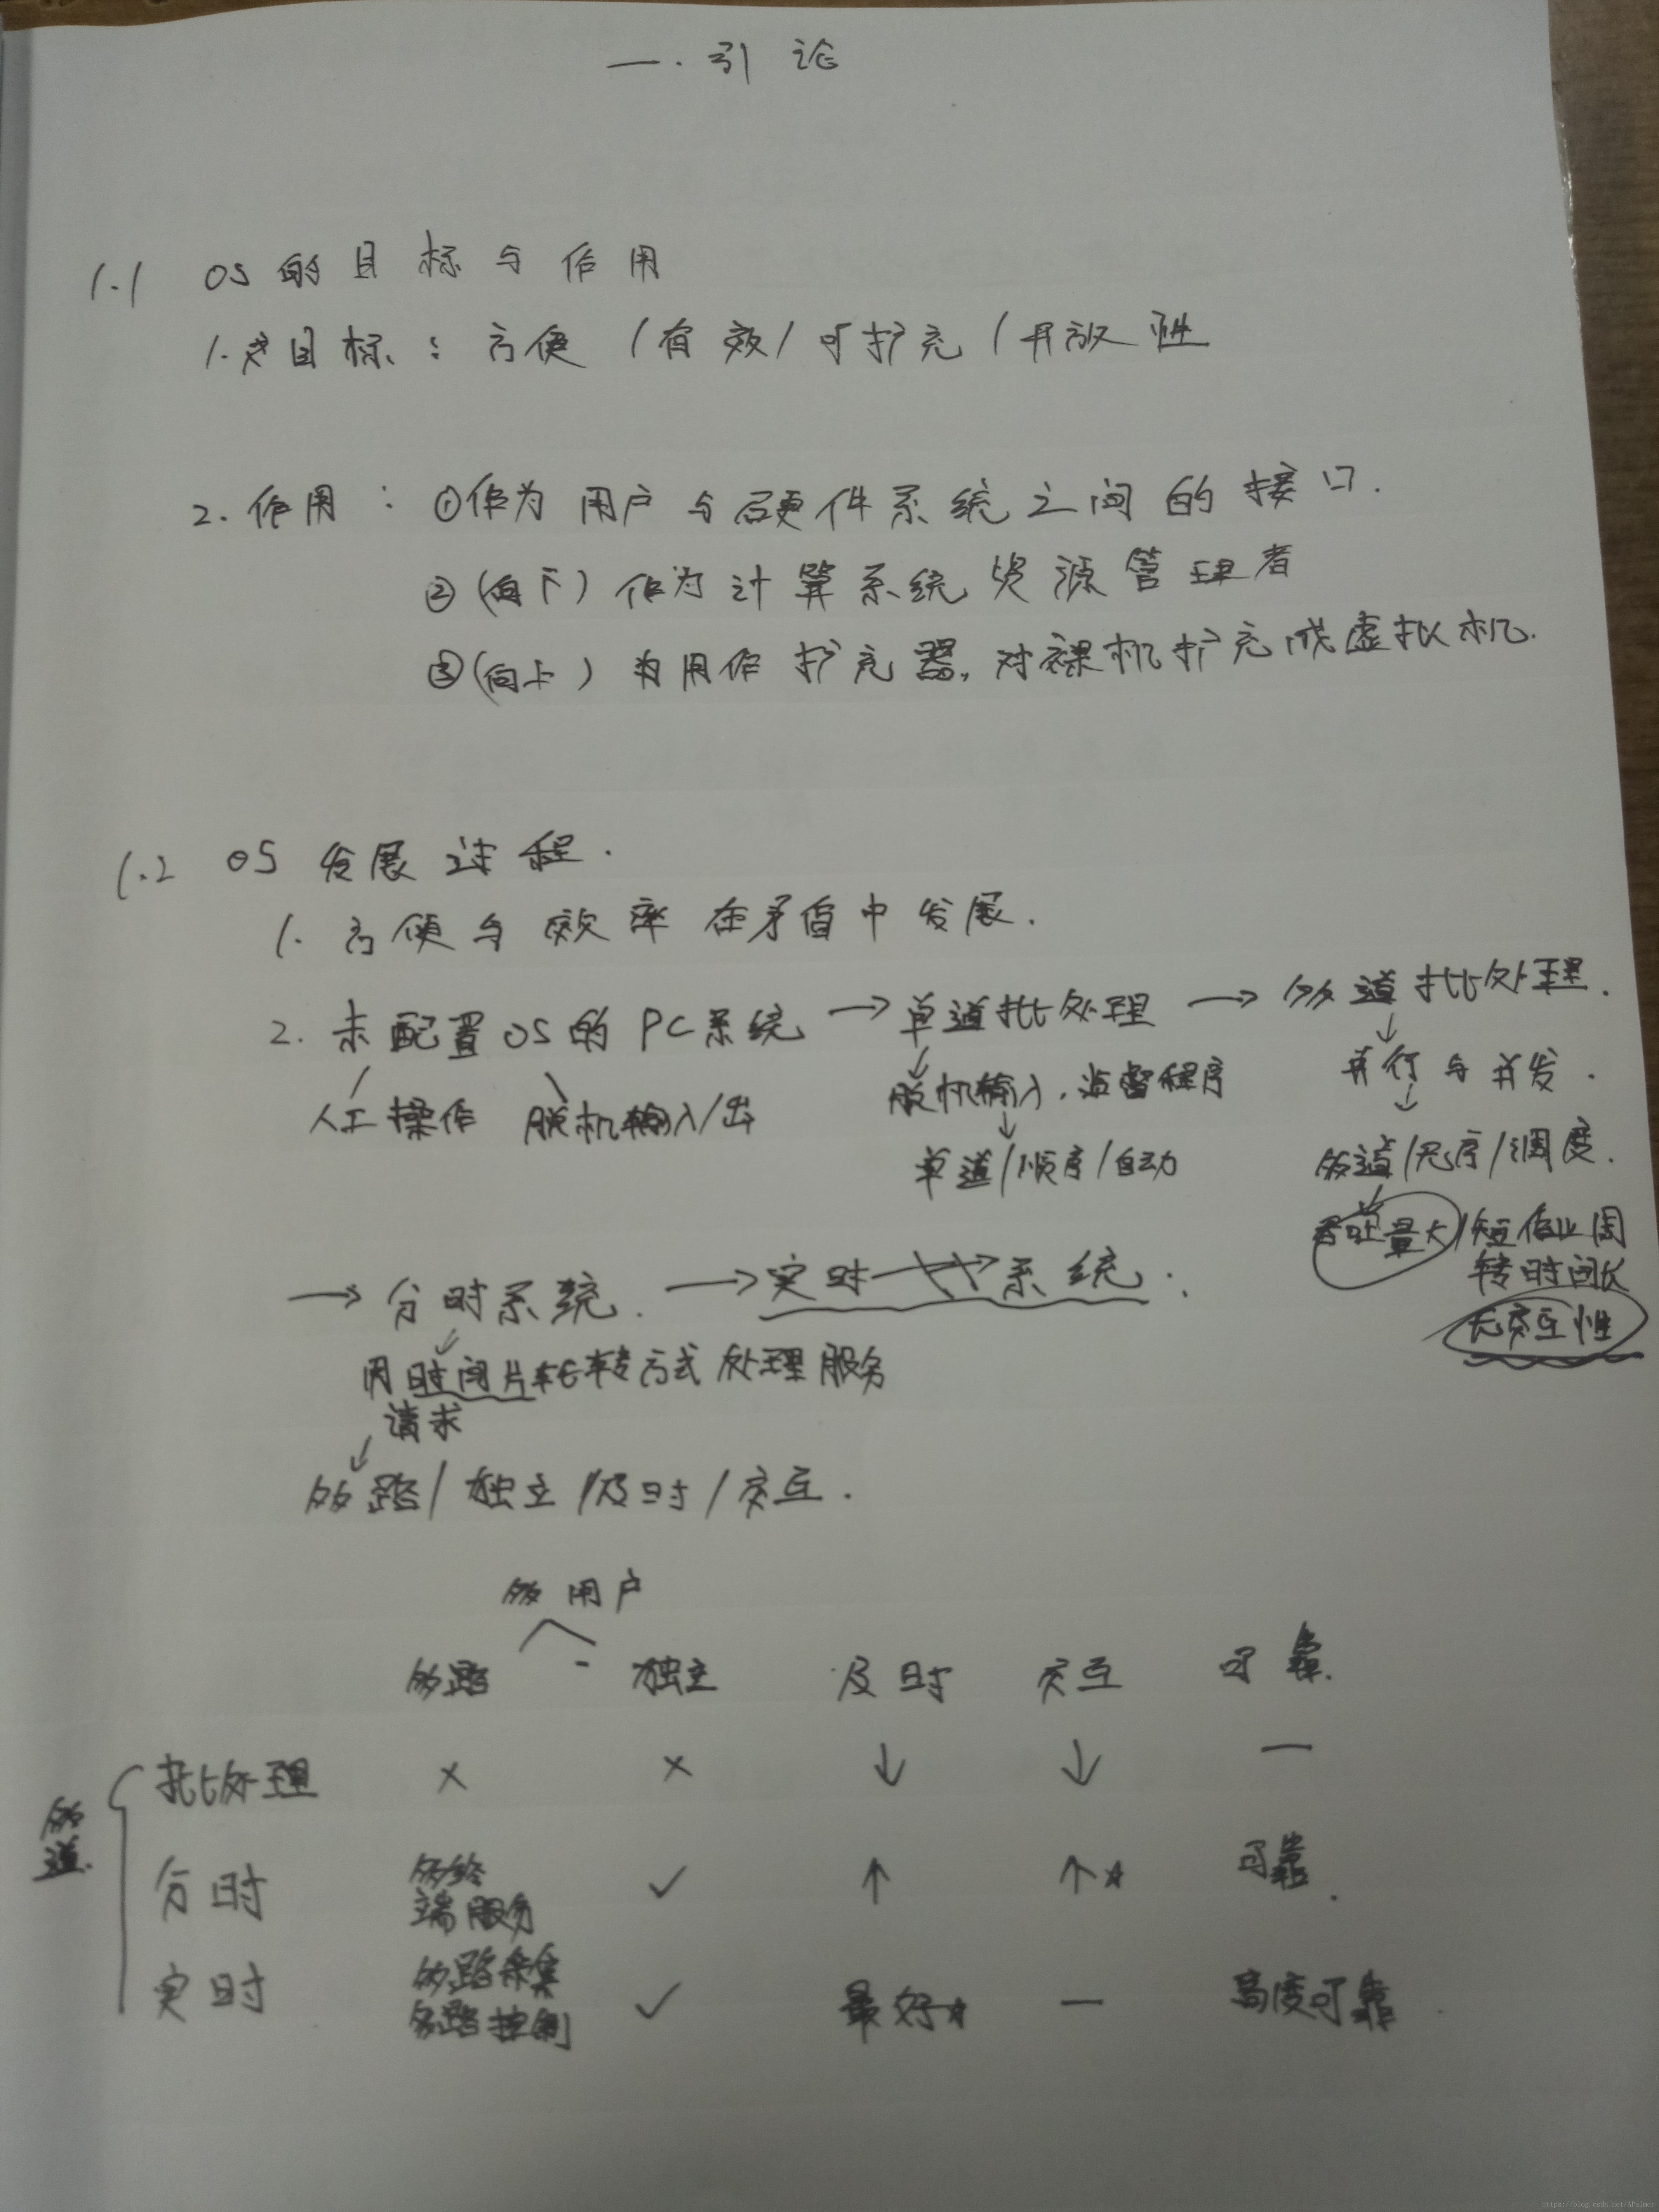 一.引论
1.1 OS的目标与作用
1.目标:方便/有效/可扩充/开放性
2.作用:①作为用户与硬件系统之间的接口.
②(向下)作为计算系统资源管理者
③(向上)为用作扩充器,对裸机扩充成虚拟机.
1.2 OS发展过程.
1.方便与效率在矛盾中发展.
2.未配置OS的PC系统→单道批处理→多道批处理.
人工操作 脱机输入/出
脱机输入,监督程序
单道/顺序/自动
并行与并发.
多道/无序/调度.
吞吐量大/短作业周
转时间长
无交互性
→分时系统.→实时系统.
用时间片轮转方式处理服务
请求
多路/独立/及时/交互.
多用户
多路 - 独立 及时 交互 可靠.
多道.
批处理 × × ↓ ↓ —
分时 多终端服务 ✓ ↑ ↑☆ 可靠.
实时 多路采集多路控制 ✓ 最好☆ — 高度可靠.
https://blog.csdn.net/APalmer